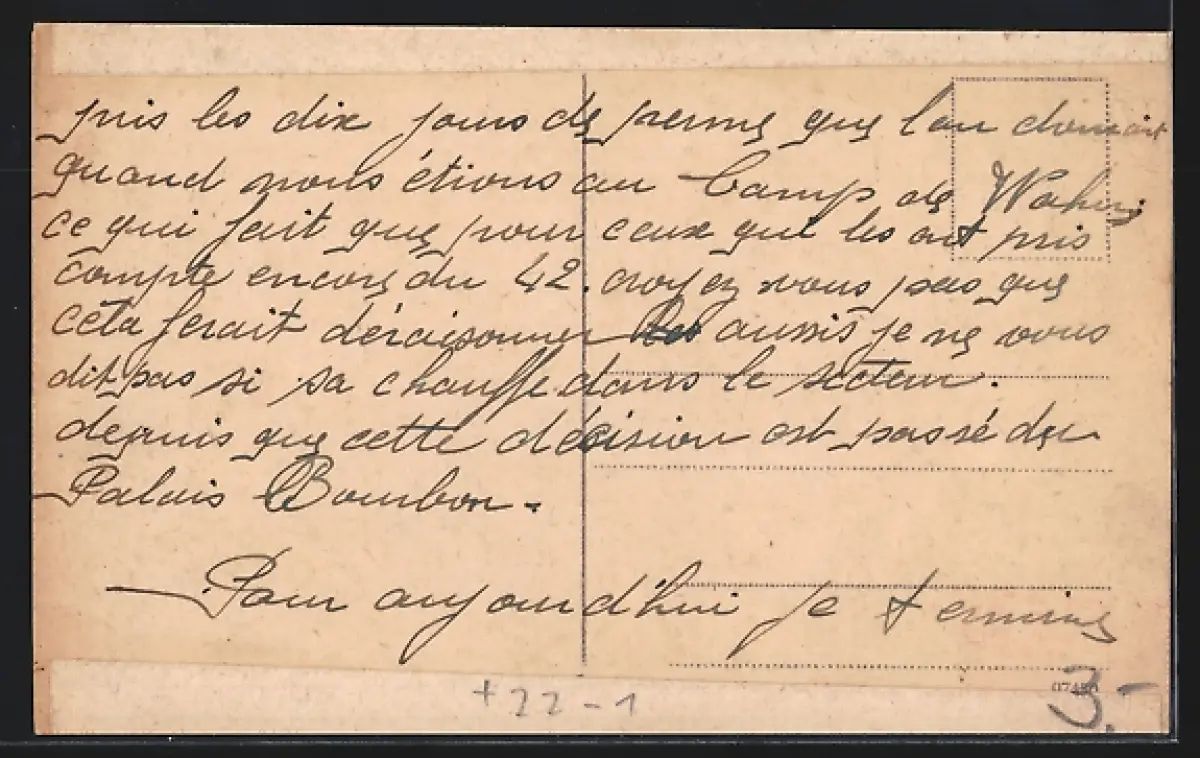 pris les dix jours de perme que l'on donnait
quand nous étions au Camp de Wahn;
ce qui fait que pour ceux qui les ont pris
compte encore du 42. croyez vous pas que
cela ferait déraisonner aussis je ne vous
dit pas si sa chauffe dans le secteur.
depuis que cette décision est passé du
Palais Bourbon.
Pour aujourd'hui je termine
+22-1
3.-